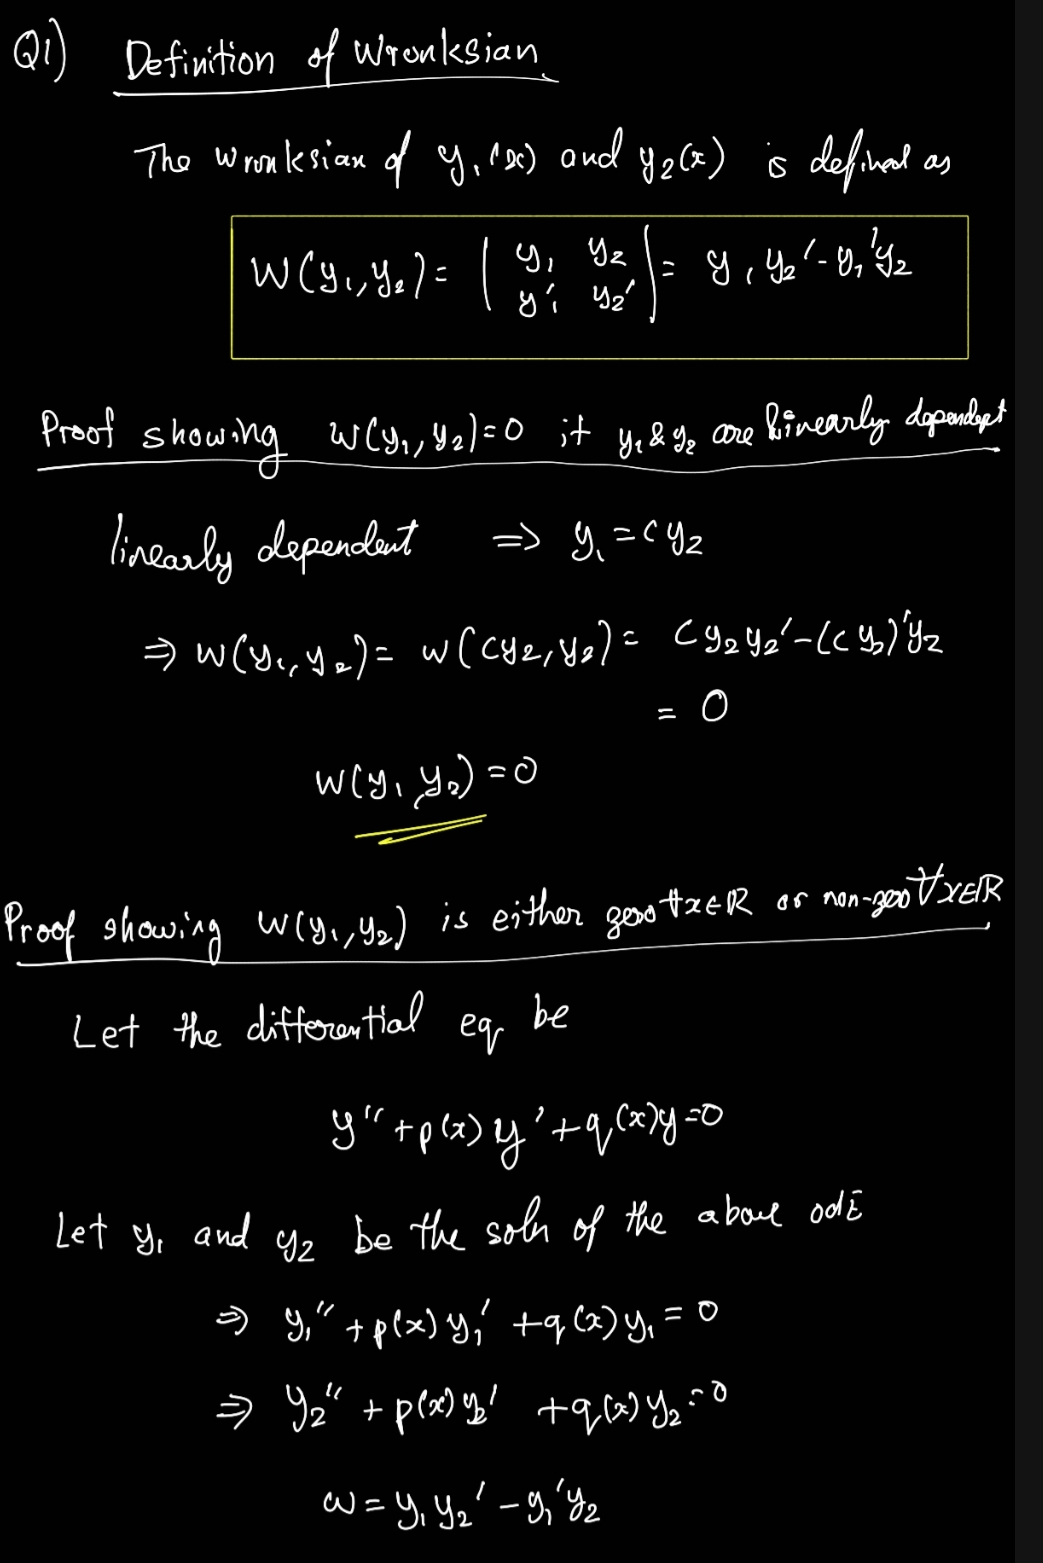 Q1) Definition of Wronksian
The wronksian of y₁(x) and y₂(x) is defined as
W(y₁,y₂) = | y₁ y₂ | = y₁y₂' - y₁'y₂
y₁' y₂'
Proof showing W(y₁,y₂)=0 if y₁ & y₂ are linearly dependent
linearly dependent ⇒ y₁ = cy₂
⇒ W(y₁,y₂) = W(cy₂,y₂) = cy₂y₂' - (cy₂)'y₂
= 0
W(y₁,y₂) = 0
Proof showing W(y₁,y₂) is either zero ∀x∈ℝ or non-zero ∀x∈ℝ
Let the differential eq be
y'' + p(x)y' + q(x)y = 0
Let y₁ and y₂ be the soln of the above odE
⇒ y₁'' + p(x)y₁' + q(x)y₁ = 0
⇒ y₂'' + p(x)y₂' + q(x)y₂ = 0
ω = y₁y₂' - y₁'y₂